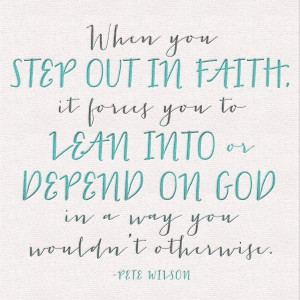 When you
STEP OUT IN FAITH,
it forces you to
LEAN INTO or
DEPEND ON GOD
in a way you
wouldn't otherwise.
-PETE WILSON